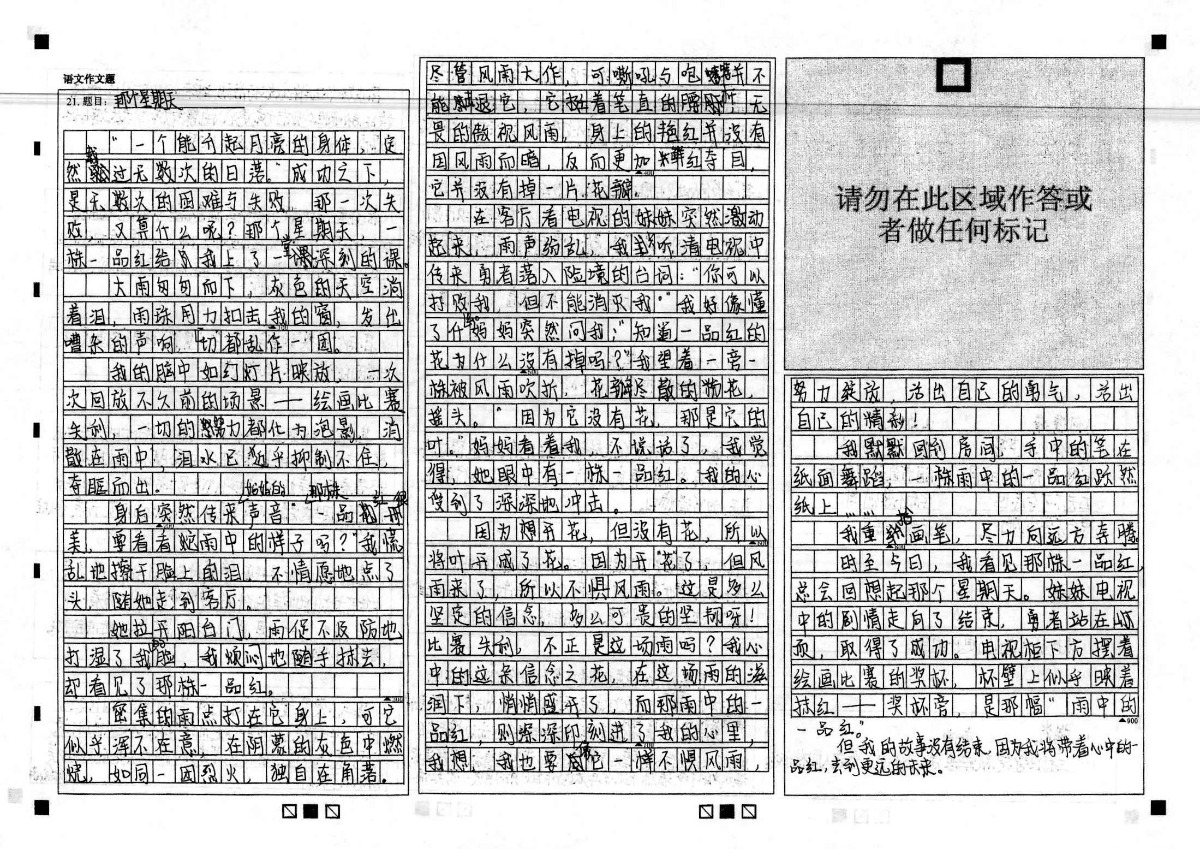 语文作文题
21. 题目：那个星期天
“一个能升起月亮的身体，定
然我过无数次的日落。”成功之下，
是无数次的困难与失败，那一次失
败，又算什么呢？那个星期天，一
株一品红给我上了一堂深刻的课。
大雨匆匆而下，灰色的天空淌
着泪，雨珠用力扣击我的窗，发出
嘈杂的声响，一切都乱作一团。
我的脑中如幻灯片映放，一次
次回放不久前的场景——绘画比赛
失利，一切的努力都化为泡影，消
散在雨中，泪水已近乎抑制不住，
夺眶而出。
身后突然传来妈妈的声音“那株一品红很
美，要看看她雨中的样子吗？”我慌
乱地擦干脸上的泪，不情愿地点了
头，随她走到客厅。
她拉开阳台门，雨促不及防地
打湿了我的脸，我烦闷地随手抹去，
却看见了那株一品红。
密集的雨点打在它身上，可它
似乎浑不在意，在阴蒙的灰色中燃
烧，如同一团烈火，独自在角落。
尽管风雨大作，可嘶吼与咆哮并不
能击退它，它挺着笔直的腰杆，无
畏的傲视风雨，身上的艳红并没有
因风雨而暗，反而更加鲜红夺目，
它并没有掉一片花瓣。
在客厅看电视的妹妹突然激动
起来，雨声纷乱，我听清电视中
传来勇者落入险境的台词：“你可以
打败我，但不能消灭我。”我好像懂
了什么。妈妈突然问我：“知道一品红的
花为什么没有掉吗？”我望着一旁一
株被风雨吹折，花瓣尽散的物花，
摇头。“因为它没有花，那是它的
叶。”妈妈看着我，不说话了，我觉
得，她眼中有一株一品红。我的心
受到了深深地冲击。
因为想开花，但没有花，所以
将叶开成了花。因为开“花”了，但风
雨来了，所以不惧风雨。这是多么
坚定的信念，多么可贵的坚韧呀！
比赛失利，不正是这场雨吗？我心
中的这朵信念之花，在这场雨的滋
润下，悄悄盛开了，而那雨中的一
品红，则深深印刻进了我的心里，
我想，我也要像它一样不惧风雨，
请勿在此区域作答或
者做任何标记
努力绽放，活出自己的勇气，活出
自己的精彩！
我默默回到房间，手中的笔在
纸面舞蹈，一株雨中的一品红跃然
纸上……
我重拾画笔，尽力向远方奔腾。
时至今日，我看见那株一品红，
总会回想起那个星期天。妹妹电视
中的剧情走向了结束，勇者站在城
顶，取得了成功。电视柜下方摆着
绘画比赛的奖杯，杯壁上似乎映着
抹红——奖杯旁，是那幅“雨中的
一品红。”
但我的故事没有结束，因为我将带着心中的一
品红，去到更远的未来。